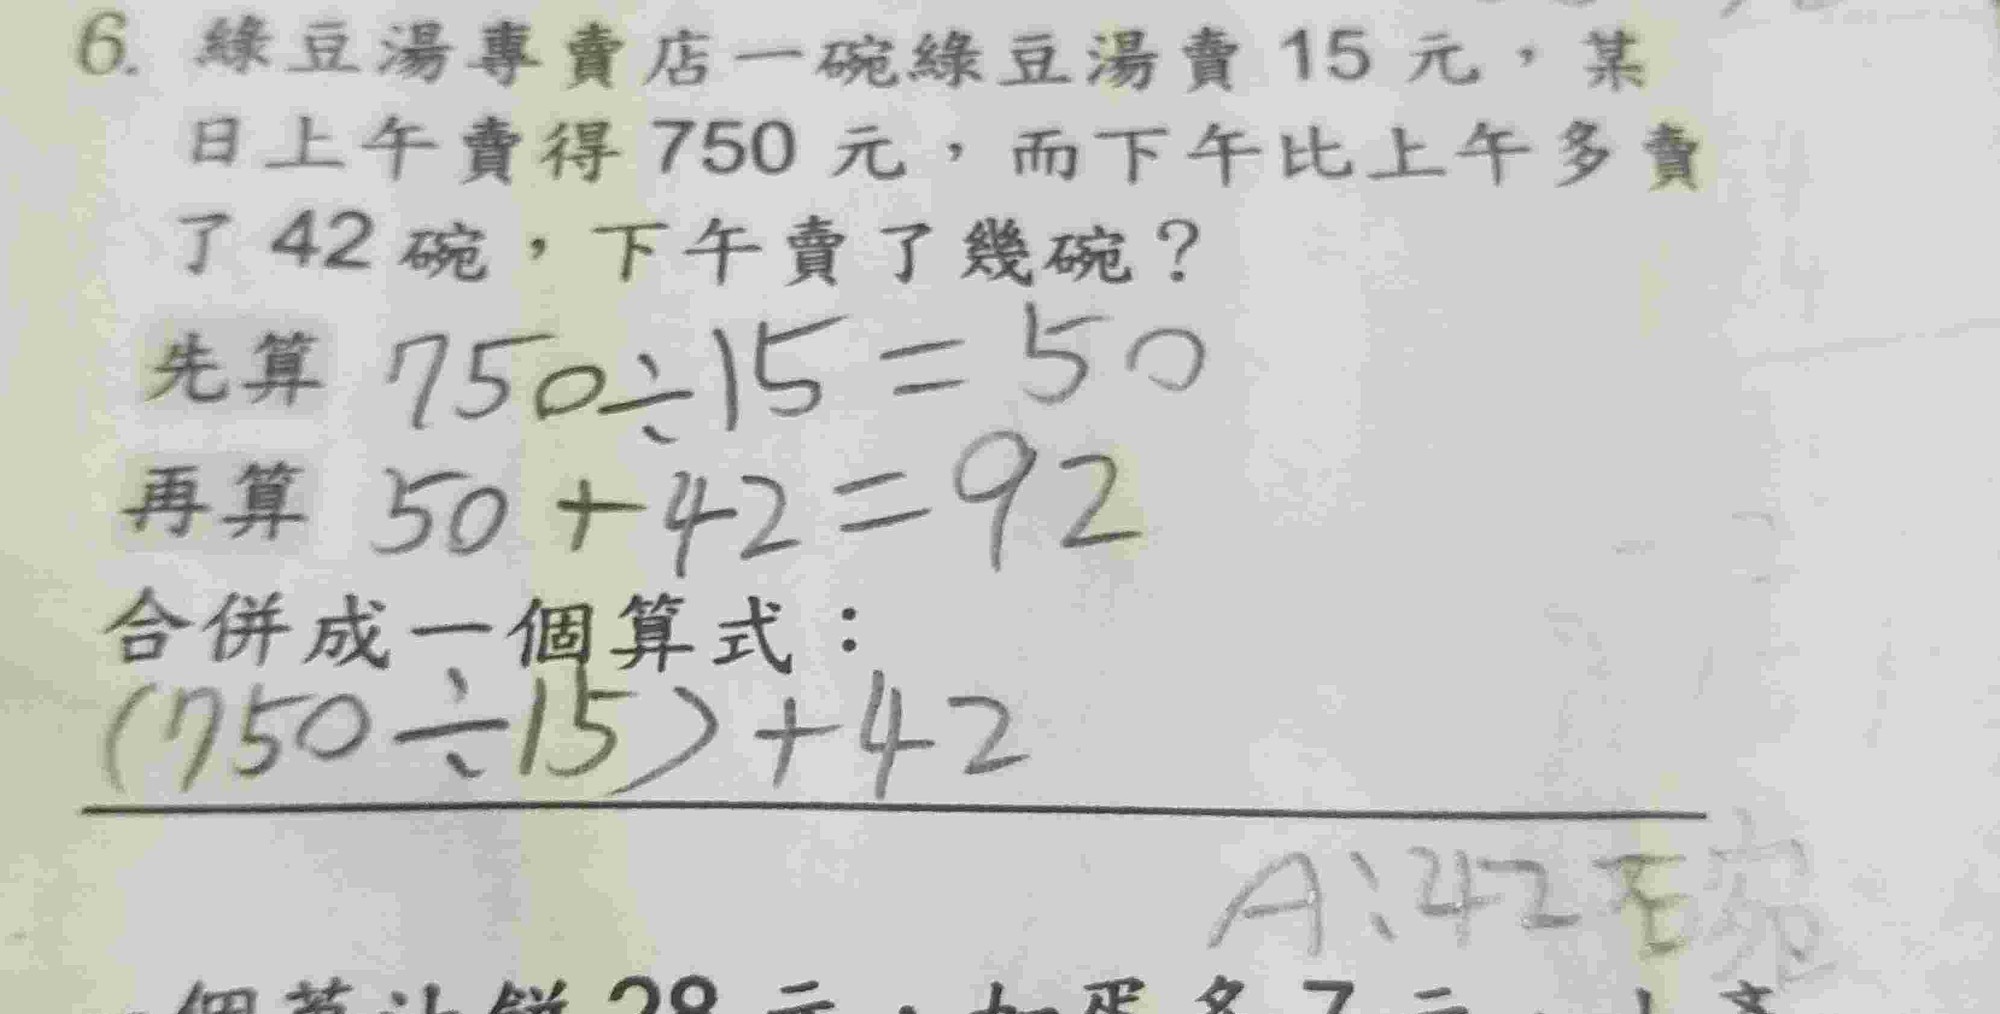 6. 綠豆湯專賣店一碗綠豆湯賣 15 元，某
日上午賣得 750 元，而下午比上午多賣
了 42 碗，下午賣了幾碗？
先算 750÷15=50
再算 50+42=92
合併成一個算式：
(750÷15)+42
A:42 碗
28 元，加蛋多 7 元